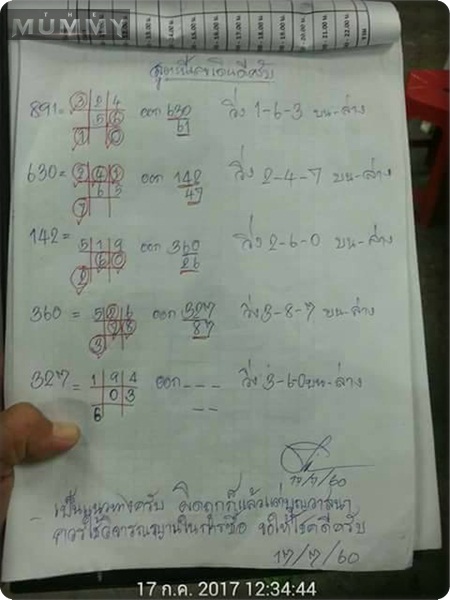 MUMMY
สูตรนี้กำลังเดินดีครับ
891= 3 2 4 ออก 630 วิ่ง 1-6-3 บน-ล่าง
5 6 61
1 0
630= 2 4 1 ออก 142 วิ่ง 2-4-7 บน-ล่าง
6 5 47
7
142= 5 1 9 ออก 360 วิ่ง 2-6-0 บน-ล่าง
6 0 26
2
360 = 5 2 6 ออก 327 วิ่ง 3-8-7 บน-ล่าง
7 8 87
3
327= 1 9 4 ออก - - - วิ่ง 3-6-0 บน-ล่าง
0 3 - -
6
17/7/60
- เป็นแนวทางครับ ผิดถูกก็แล้วแต่บุญวาสนา
ควรใช้วิจารณญาณในการซื้อ ขอให้โชคดีครับ
17/7/60
17 ก.ค. 2017 12:34:44